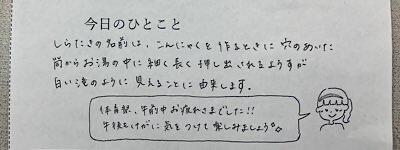 今日のひとこと
しらたきの名前は、こんにゃくを作るときに穴のあいた
筒からお湯の中に細く長く押し出されるようすが
白い滝のように見えることに由来します。
体育祭、午前中お疲れさまでした!!
午後もけがに気をつけて楽しみましょう